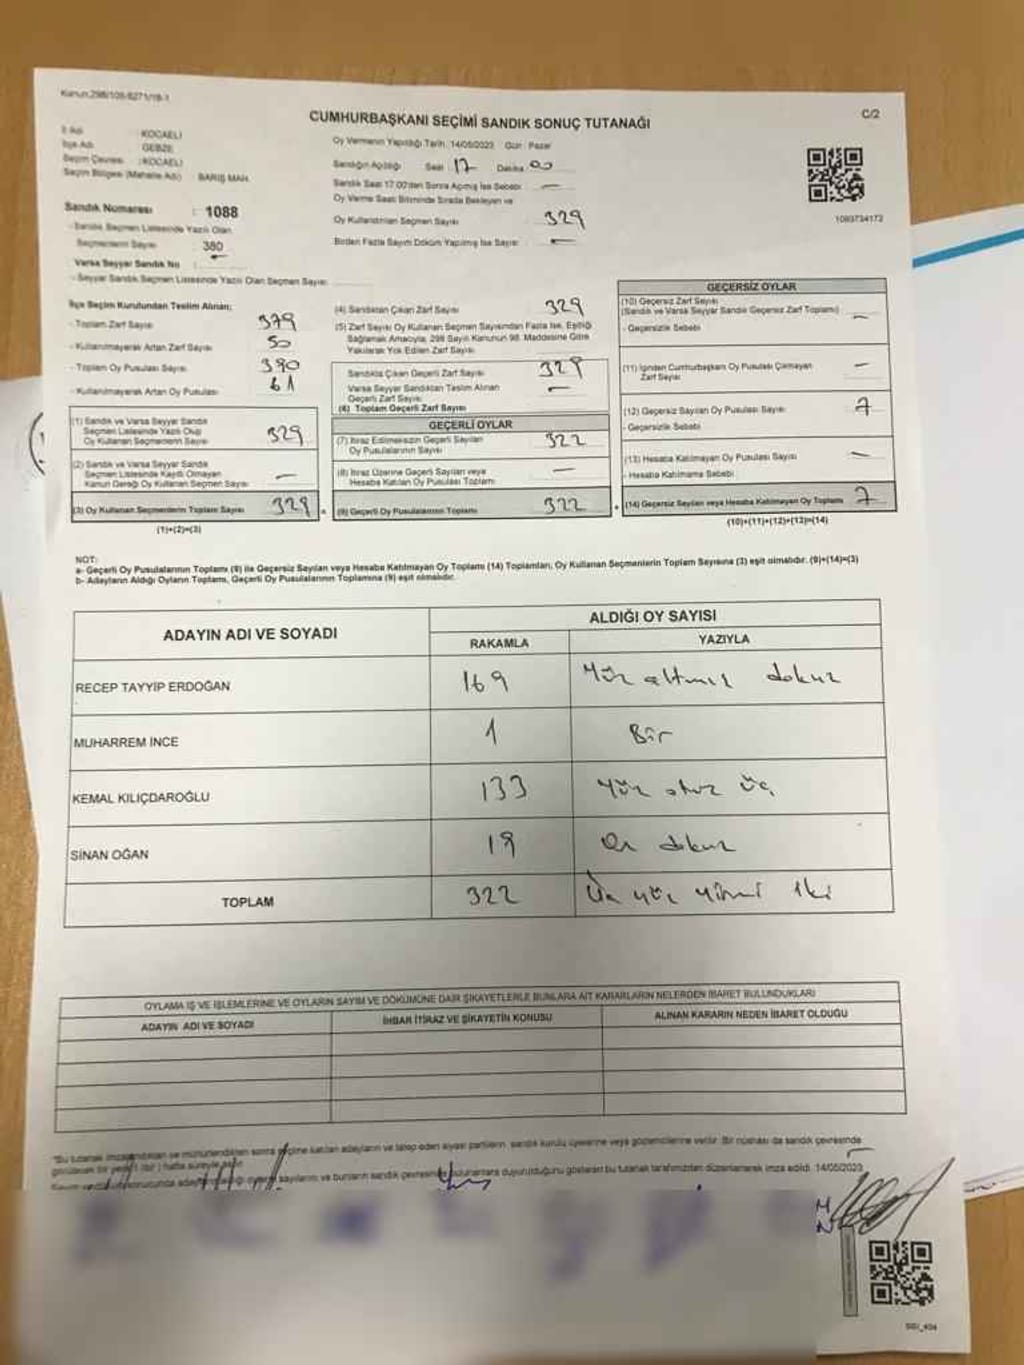 Kanun:298/108-6271/18-1
C/2
CUMHURBAŞKANI SEÇİMİ SANDIK SONUÇ TUTANAĞI
İl Adı : KOCAELİ
İlçe Adı : GEBZE
Seçim Çevresi : KOCAELİ
Seçim Bölgesi (Mahalle Adı) : BARIŞ MAH.
Sandık Numarası : 1088
- Sandık Seçmen Listesinde Yazılı Olan
Seçmenlerin Sayısı : 380
Varsa Seyyar Sandık No :
- Seyyar Sandık Seçmen Listesinde Yazılı Olan Seçmen Sayısı:
Oy Vermenin Yapıldığı Tarih: 14/05/2023 Gün : Pazar
Sandığın Açıldığı Saat 17 Dakika 00
Sandık Saat 17:00'den Sonra Açılmış İse Sebebi —
Oy Verme Saati Bitiminde Sırada Bekleyen ve
Oy Kullandırılan Seçmen Sayısı 329
Birden Fazla Sayım Döküm Yapılmış İse Sayısı —
1093734173
İlçe Seçim Kurulundan Teslim Alınan;
- Toplam Zarf Sayısı 379
- Kullanılmayarak Artan Zarf Sayısı 50
- Toplam Oy Pusulası Sayısı 390
- Kullanılmayarak Artan Oy Pusulası 61
(1) Sandık ve Varsa Seyyar Sandık
Seçmen Listesinde Yazılı Olup
Oy Kullanan Seçmenlerin Sayısı 329
(2) Sandık ve Varsa Seyyar Sandık
Seçmen Listesinde Kayıtlı Olmayan
Kanun Gereği Oy Kullanan Seçmen Sayısı —
(3) Oy Kullanan Seçmenlerin Toplam Sayısı 329
(1)+(2)=(3)
(4) Sandıktan Çıkan Zarf Sayısı 329
(5) Zarf Sayısı Oy Kullanan Seçmen Sayısından Fazla İse, Eşitliği
Sağlamak Amacıyla, 298 Sayılı Kanunun 98. Maddesine Göre
Yakılarak Yok Edilen Zarf Sayısı
Sandıkta Çıkan Geçerli Zarf Sayısı 329
Varsa Seyyar Sandıktan Teslim Alınan
Geçerli Zarf Sayısı —
(6) Toplam Geçerli Zarf Sayısı
GEÇERLİ OYLAR
(7) İtiraz Edilmeksizin Geçerli Sayılan
Oy Pusulalarının Sayısı 322
(8) İtiraz Üzerine Geçerli Sayılan veya
Hesaba Katılan Oy Pusulası Toplamı —
(9) Geçerli Oy Pusulalarının Toplamı 322
GEÇERSİZ OYLAR
(10) Geçersiz Zarf Sayısı
(Sandık ve Varsa Seyyar Sandık Geçersiz Zarf Toplamı) —
- Geçersizlik Sebebi
(11) İçinden Cumhurbaşkanı Oy Pusulası Çıkmayan
Zarf Sayısı —
(12) Geçersiz Sayılan Oy Pusulası Sayısı 7
- Geçersizlik Sebebi
(13) Hesaba Katılmayan Oy Pusulası Sayısı —
- Hesaba Katılmama Sebebi
(14) Geçersiz Sayılan veya Hesaba Katılmayan Oy Toplamı 7
(10)+(11)+(12)+(13)=(14)
NOT:
a- Geçerli Oy Pusulalarının Toplamı (9) ile Geçersiz Sayılan veya Hesaba Katılmayan Oy Toplamı (14) Toplamları, Oy Kullanan Seçmenlerin Toplam Sayısına (3) eşit olmalıdır. (9)+(14)=(3)
b- Adayların Aldığı Oyların Toplamı, Geçerli Oy Pusulalarının Toplamına (9) eşit olmalıdır.
ADAYIN ADI VE SOYADI
ALDIĞI OY SAYISI
RAKAMLA YAZIYLA
RECEP TAYYİP ERDOĞAN 169 Yüz altmış dokuz
MUHARREM İNCE 1 Bir
KEMAL KILIÇDAROĞLU 133 Yüz otuz üç
SİNAN OĞAN 19 On dokuz
TOPLAM 322 Üç yüz yirmi iki
OYLAMA İŞ VE İŞLEMLERİNE VE OYLARIN SAYIM VE DÖKÜMÜNE DAİR ŞİKAYETLERLE BUNLARA AİT KARARLARIN NELERDEN İBARET BULUNDUKLARI
ADAYIN ADI VE SOYADI İHBAR İTİRAZ VE ŞİKAYETİN KONUSU ALINAN KARARIN NEDEN İBARET OLDUĞU
"Bu tutanak imzalandıktan ve mühürlendikten sonra seçime katılan adayların ve talep eden siyasi partilerin sandık kurulu üyelerine veya gözlemcilerine verilir. Bir nüshası da sandık çevresinde
görülecek bir yere (1 hafta süreyle
sayılarını ve bunların sandık çevresinde bulunanlara duyurulduğunu gösteren bu tutanak tarafımızdan düzenlenerek imza edildi. 14/05/2023